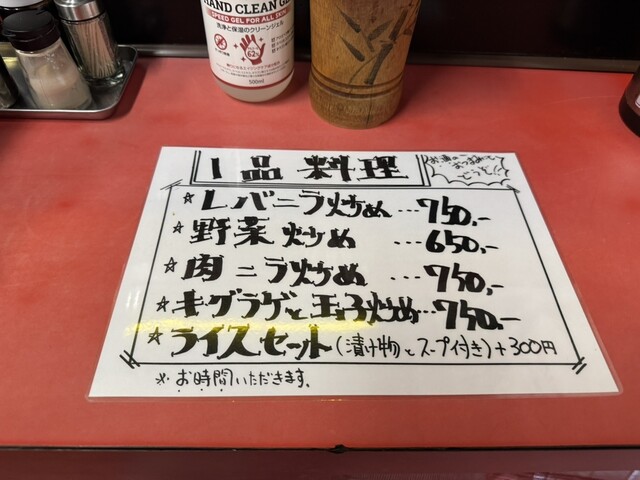 HAND CLEAN GEL
SPEED GEL FOR ALL SKIN
洗浄と保湿のクリーンジェル
62%
500ml
1品料理
お酒のおつまみに
どうぞ!!
☆レバニラ炒め…750,-
☆野菜炒め…650,-
☆肉ニラ炒め…750,-
☆キクラゲと玉子炒め…750,-
☆ライスセット(漬け物とスープ付き)+300円
※お時間いただきます。